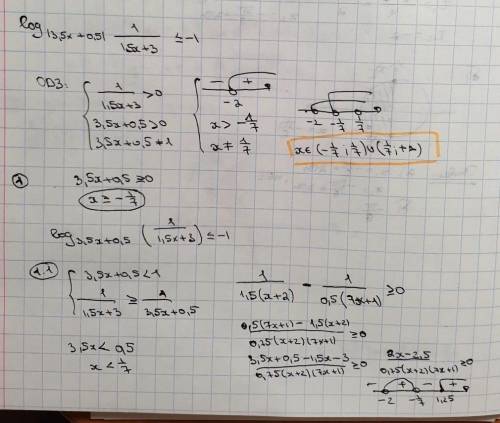 log |3,5x+0,5| 1/(1,5x+3) ≤ -1
ОДЗ: { 1/(1,5x+3) > 0 { - + -2
3,5x+0,5 > 0 x > -1/7 -2 -1/7 1/7
3,5x+0,5 ≠ 1 x ≠ 1/7 x ∈ (-1/7; 1/7) ∪ (1/7; +∞)
① 3,5x+0,5 ≥ 0
x ≥ -1/7
log 3,5x+0,5 (1/(1,5x+3)) ≤ -1
1.1 { 3,5x+0,5 < 1
1/(1,5x+3) ≥ 1/(3,5x+0,5)
3,5x < 0,5
x < 1/7
1/(1,5(x+2)) - 1/(0,5(7x+1)) ≥ 0
(0,5(7x+1) - 1,5(x+2))/(0,75(x+2)(7x+1)) ≥ 0
(3,5x+0,5-1,5x-3)/(0,75(x+2)(7x+1)) ≥ 0
(2x-2,5)/(0,75(x+2)(7x+1)) ≥ 0
- + - +
-2 -1/7 1,25